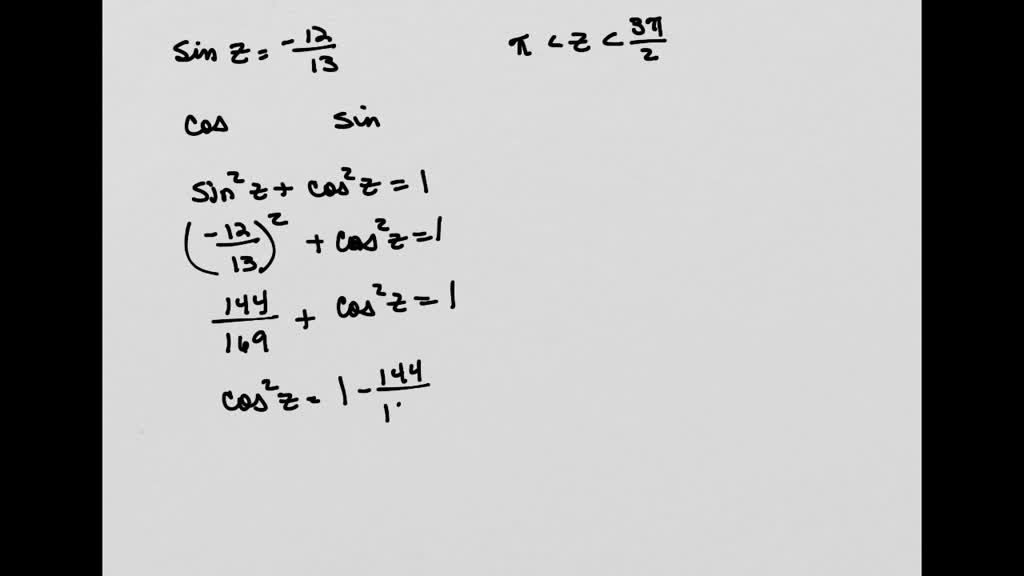 sin z = -12/13    π < z < 3π/2
cos    sin
sin²z + cos²z = 1
(-12/13)² + cos²z = 1
144/169 + cos²z = 1
cos²z = 1 - 144/1